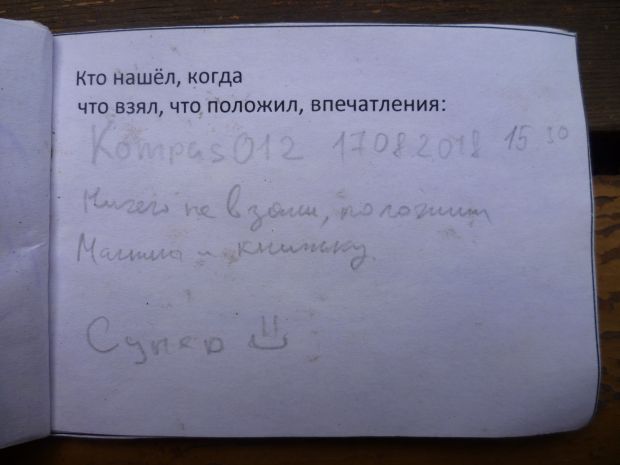 Кто нашёл, когда
что взял, что положил, впечатления:
Kompas012 17082018 15 30
Ничего не взяли, положили
и книжку.
Супер